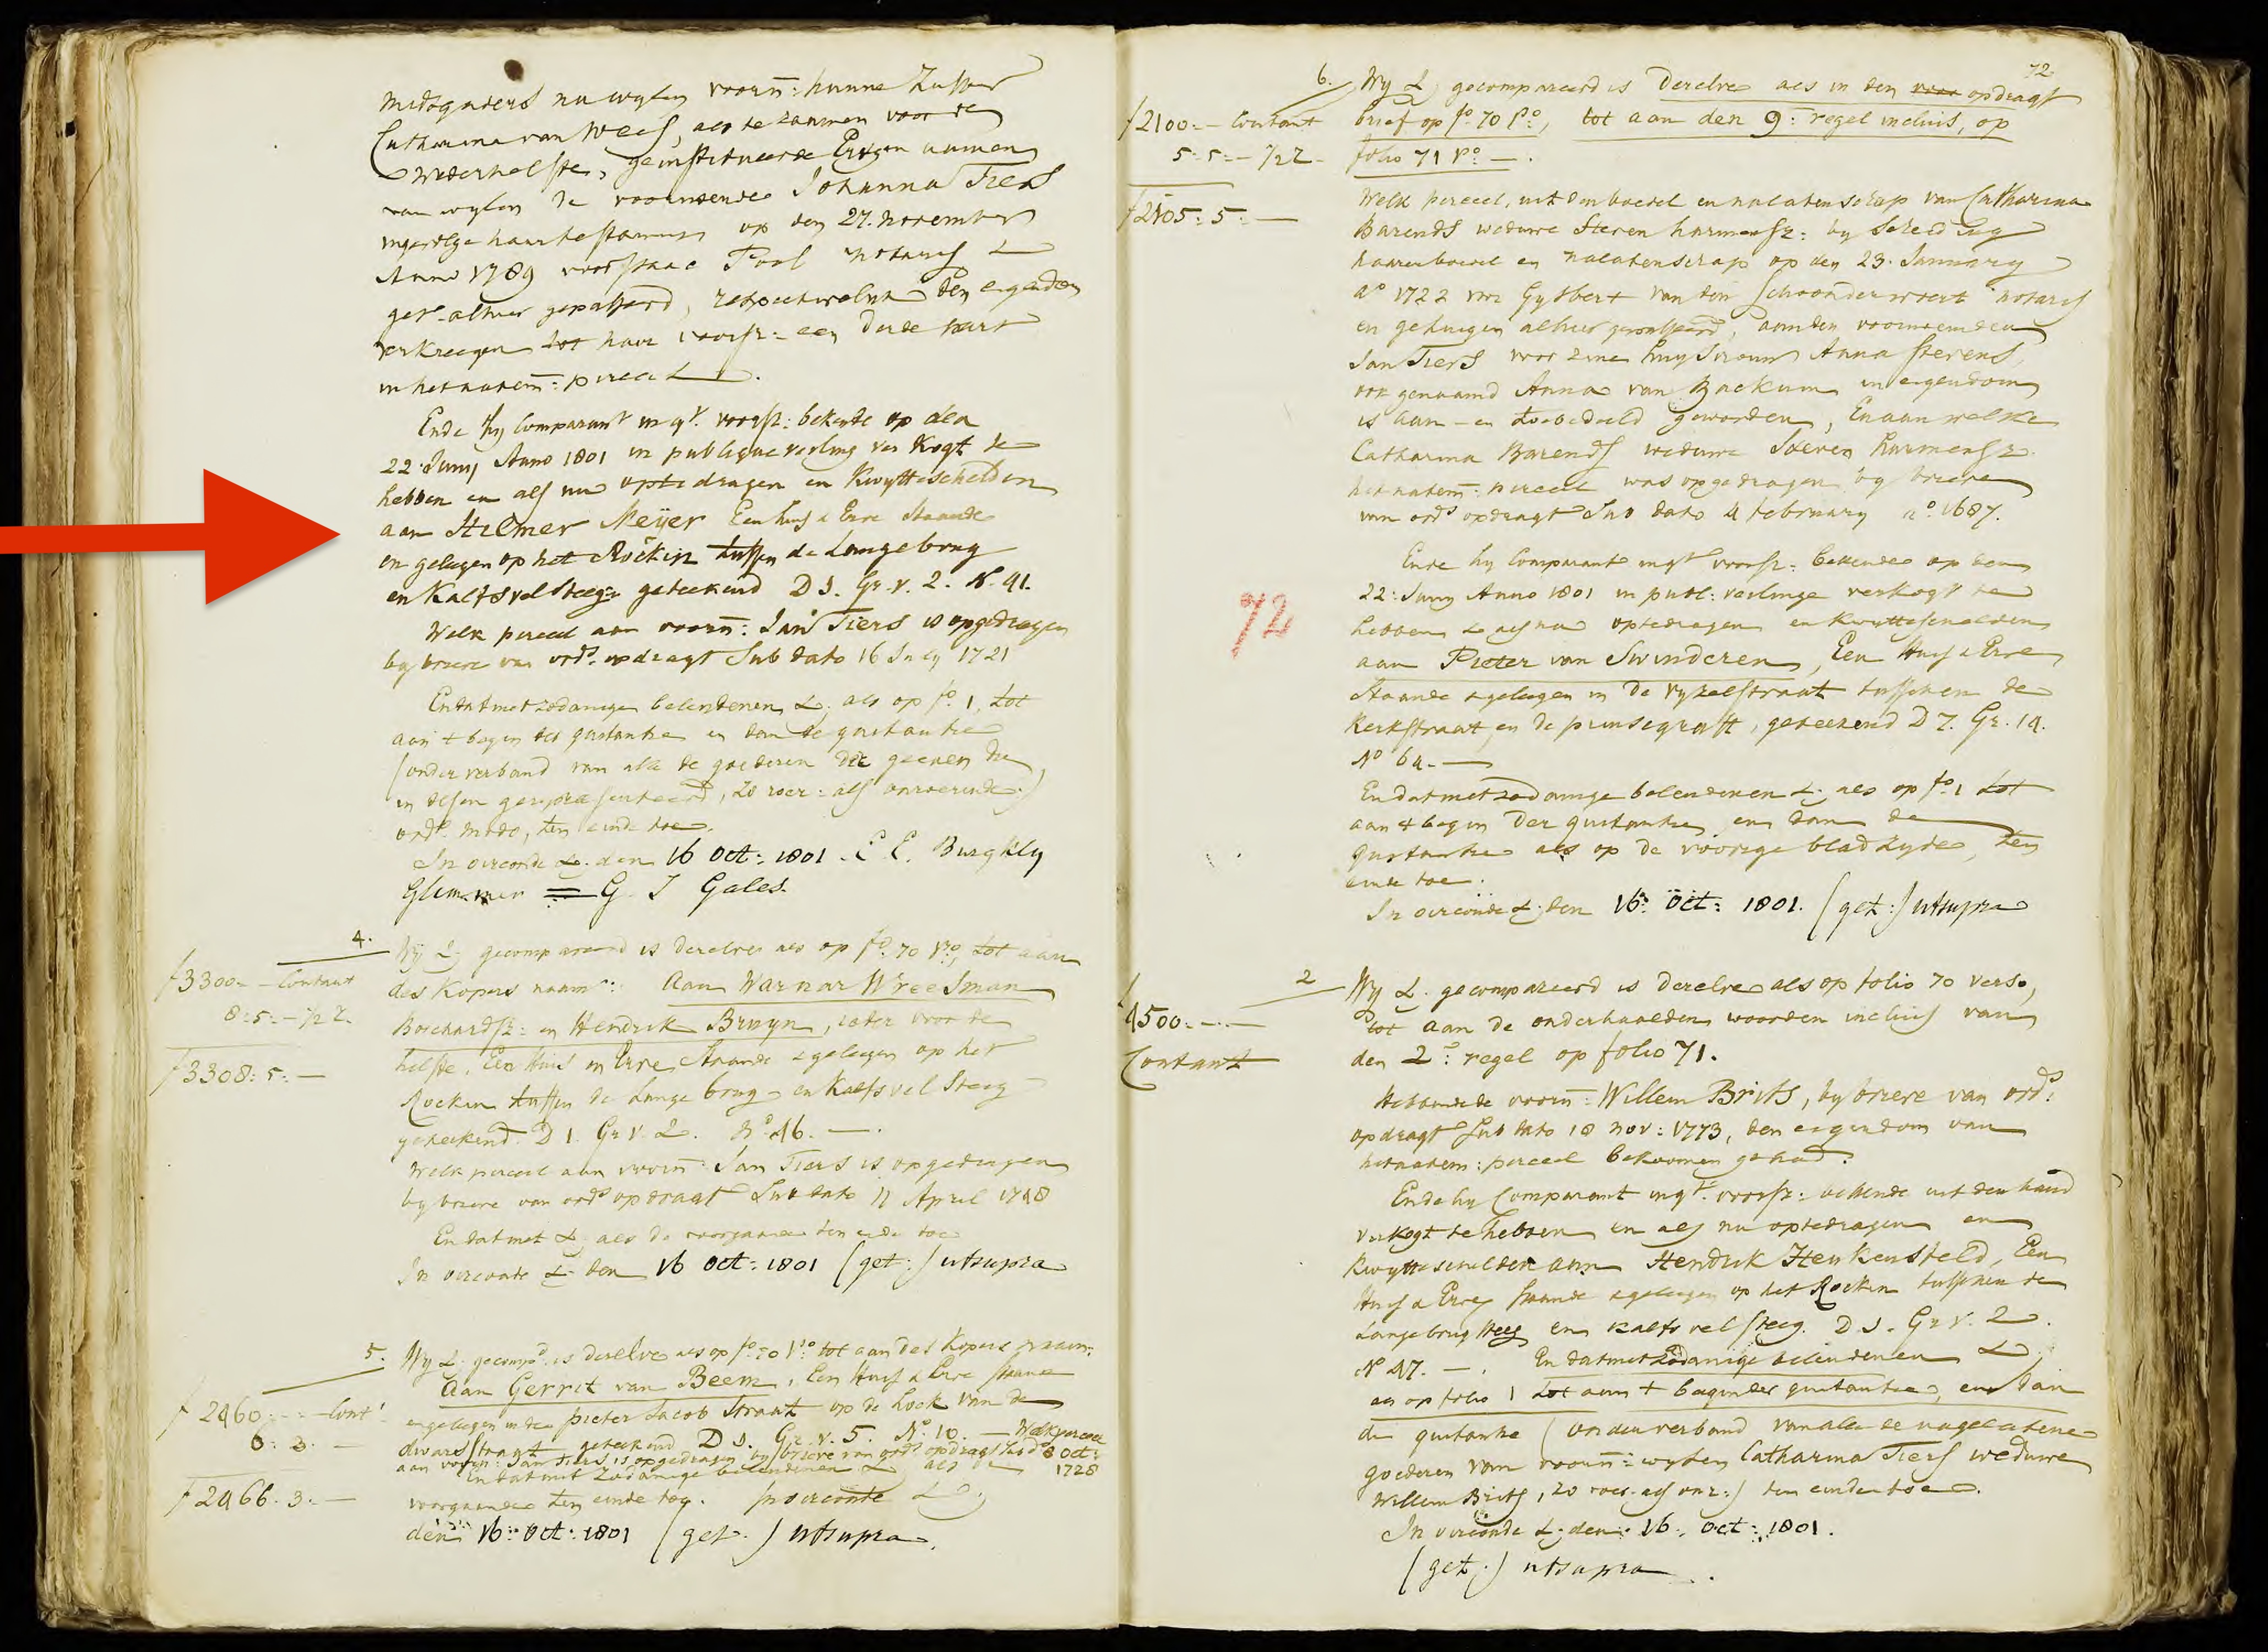 nu wylen voorn: hunne Zuster
Catharina van Wees, als te zamen voor de
wederhelfte, geinstitueerde Erfgenaamen
van wylen de voornoemde Johanna Tiers
ingevolge haar testament op den 27. november
Anno 1789 voor Isaac Pool notaris &
get. alhier gepasseerd, respectivelyk den eigendom
verkreegen tot haar voorsz: een derde part
in het natem: perceel &.
Ende hy Comparant in qt. voorsz: bekende op den
22. Juny Anno 1801 in publique veyling verkogt te
hebben en als nu optedragen en Kwytteschelden
aan Hilmer Meÿer Een huis & Erve Staande
en gelegen op het Rockin tussen de Langebrug
en Kalfsvelsteeg geteekend D 1. Gr. v. 2. N. 41.
Welk perceel aan voorn: Jan Tiers is opgedragen
by brieve van ords. opdragt Sub dato 16 July 1721
En dat met zodanige belendenen &. als op fo. 1, tot
aan t begin der quitantie en dan de quitantie
(onder verband van alle de goederen die geenen die
in desen gerepresenteerd, zo roer: als onroerende:)
ords. modo, ten einde toe.
In oirconde &. den 16 Oct: 1801. E. E. Burgkly
Glimmer = G. J Gales.
4.
Wÿ &. gecompareerd is dezelve als op fo. 70 vo., tot aan
f 3300.- Contant
des Kopers naam: Aan Warnar Wreesman
8:5:- 1/2 Z.
Borchardsz: en Hendrik Bruyn, ieder voor de
f 3308:5:-
helfte, Een Huis en Erve, Staande & gelegen op het
Rockin tussen de Lange brug en Kalfsvel Steeg
geteekend. D 1. Gr v. 2. No. 46. —.
Welk perceel aan voorn: Jan Tiers is opgedragen
by brieve van ords opdragt Sub dato 11 April 1748
En dat met &. als de voorgaande ten einde toe
In oirconde &. den 16 Oct: 1801 (get:) utsupra
5.
Wy &. gecompd. is dezelve als op fo. 70 Vo. tot aan des Kopers naam:
Aan Gerrit van Beem, Een Huis & Erve staande
f 2460:-:- Cont
en gelegen in de pieter Jacob Straat op de hoek van de
6:3:-
dwarsstraat, geteekend D 1. Gr. v. 5. No. 10. — Welk perceel
aan voorn: Jan Tiers is opgedragen by brieve van ords opdragt Subdo 8 Oct:
1728
En dat met zodanige belendenen &. als de
f 2466.3.-
voorgaande ten einde toe. In oirconde &.
den 16: Oct: 1801 (get.) utsupra.
72
6.
Wy &. gecompareerd is dezelve als in den voor opdragt
f 2100.- Contant
brief op fo. 70 vo., tot aan den 9: regel incluis, op
5:5:- 1/2 Z
folio 71 Vo. —.
f 2105:5:-
Welk perceel, uit den boedel en nalatenschap van Catharina
Barends weduwe Steven harmensz: by Scheiding
haaren boedel en nalatenschap op den 23. January
ao 1722 voor Gysbert van den Schoonderwoert notaris
en getuigen alhier gepasseerd, aan den voornoemden
Jan Tiers voor zyne huysvrouw Anna Stevens,
ook genaamd Anna van Backum in eigendom
is aan- en toebedeeld geworden, En aan welke
Catharina Barends weduwe Steven harmensz.
het natem: perceel was opgedragen by brieve
van ords opdragt Sub dato 4 february ao. 1687.
Ende hy Comparant in qt voorsz: bekende op den
22: Juny Anno 1801 in publ: veylinge verkogt te
72
hebben & als nu optedragen en Kwytteschelden
aan Pieter van Swinderen, Een Huis & Erve
Staande & gelegen in de vyzelstraat tusschen de
Kerkstraat en de prinsegraft, geteekend D 7. Gr. 14.
No 64. —
En dat met zodanige belendenen &. als op fo. 1 tot
aan t begin der quitantie, en dan de
quitantie als op de voorige bladzyde, ten
einde toe.
In oirconde &. den 16: Oct: 1801. (get:) utsupra
2
Wy &. gecompareerd is dezelve als op folio 70 verso,
4500.-.-
tot aan de onderhaalden woorden incluis van
Contant
den 2: regel op folio 71.
Hebbende voorn: Willem Brits, by brieve van ords:
opdragt Sub dato 18 nov: 1773, den eigendom van
het natem: perceel bekoomen gehad.
Ende hy Comparant in qt. voorsz: bekende uit den hand
verkogt te hebben en als nu optedragen en
Kwytteschelden aan Hendrik Henkensfeld, Een
Huis & Erve, staande & gelegen op het Rockin tusschen de
Langebrug steeg en kalfs vel steeg. D 1. Gr v. 2.
N 47. —. En dat met zodanige belendenen &
als op folio 1 tot aan t begin der quitantie, en dan
de quitantie (onder verband van alle de nagelatene
goederen van voorn: wylen Catharina Tiers weduwe
Willem Brits, zo roer. als onr:) ten einde toe.
In oirconde &. den 16: Oct: 1801.
(get:) utsupra.